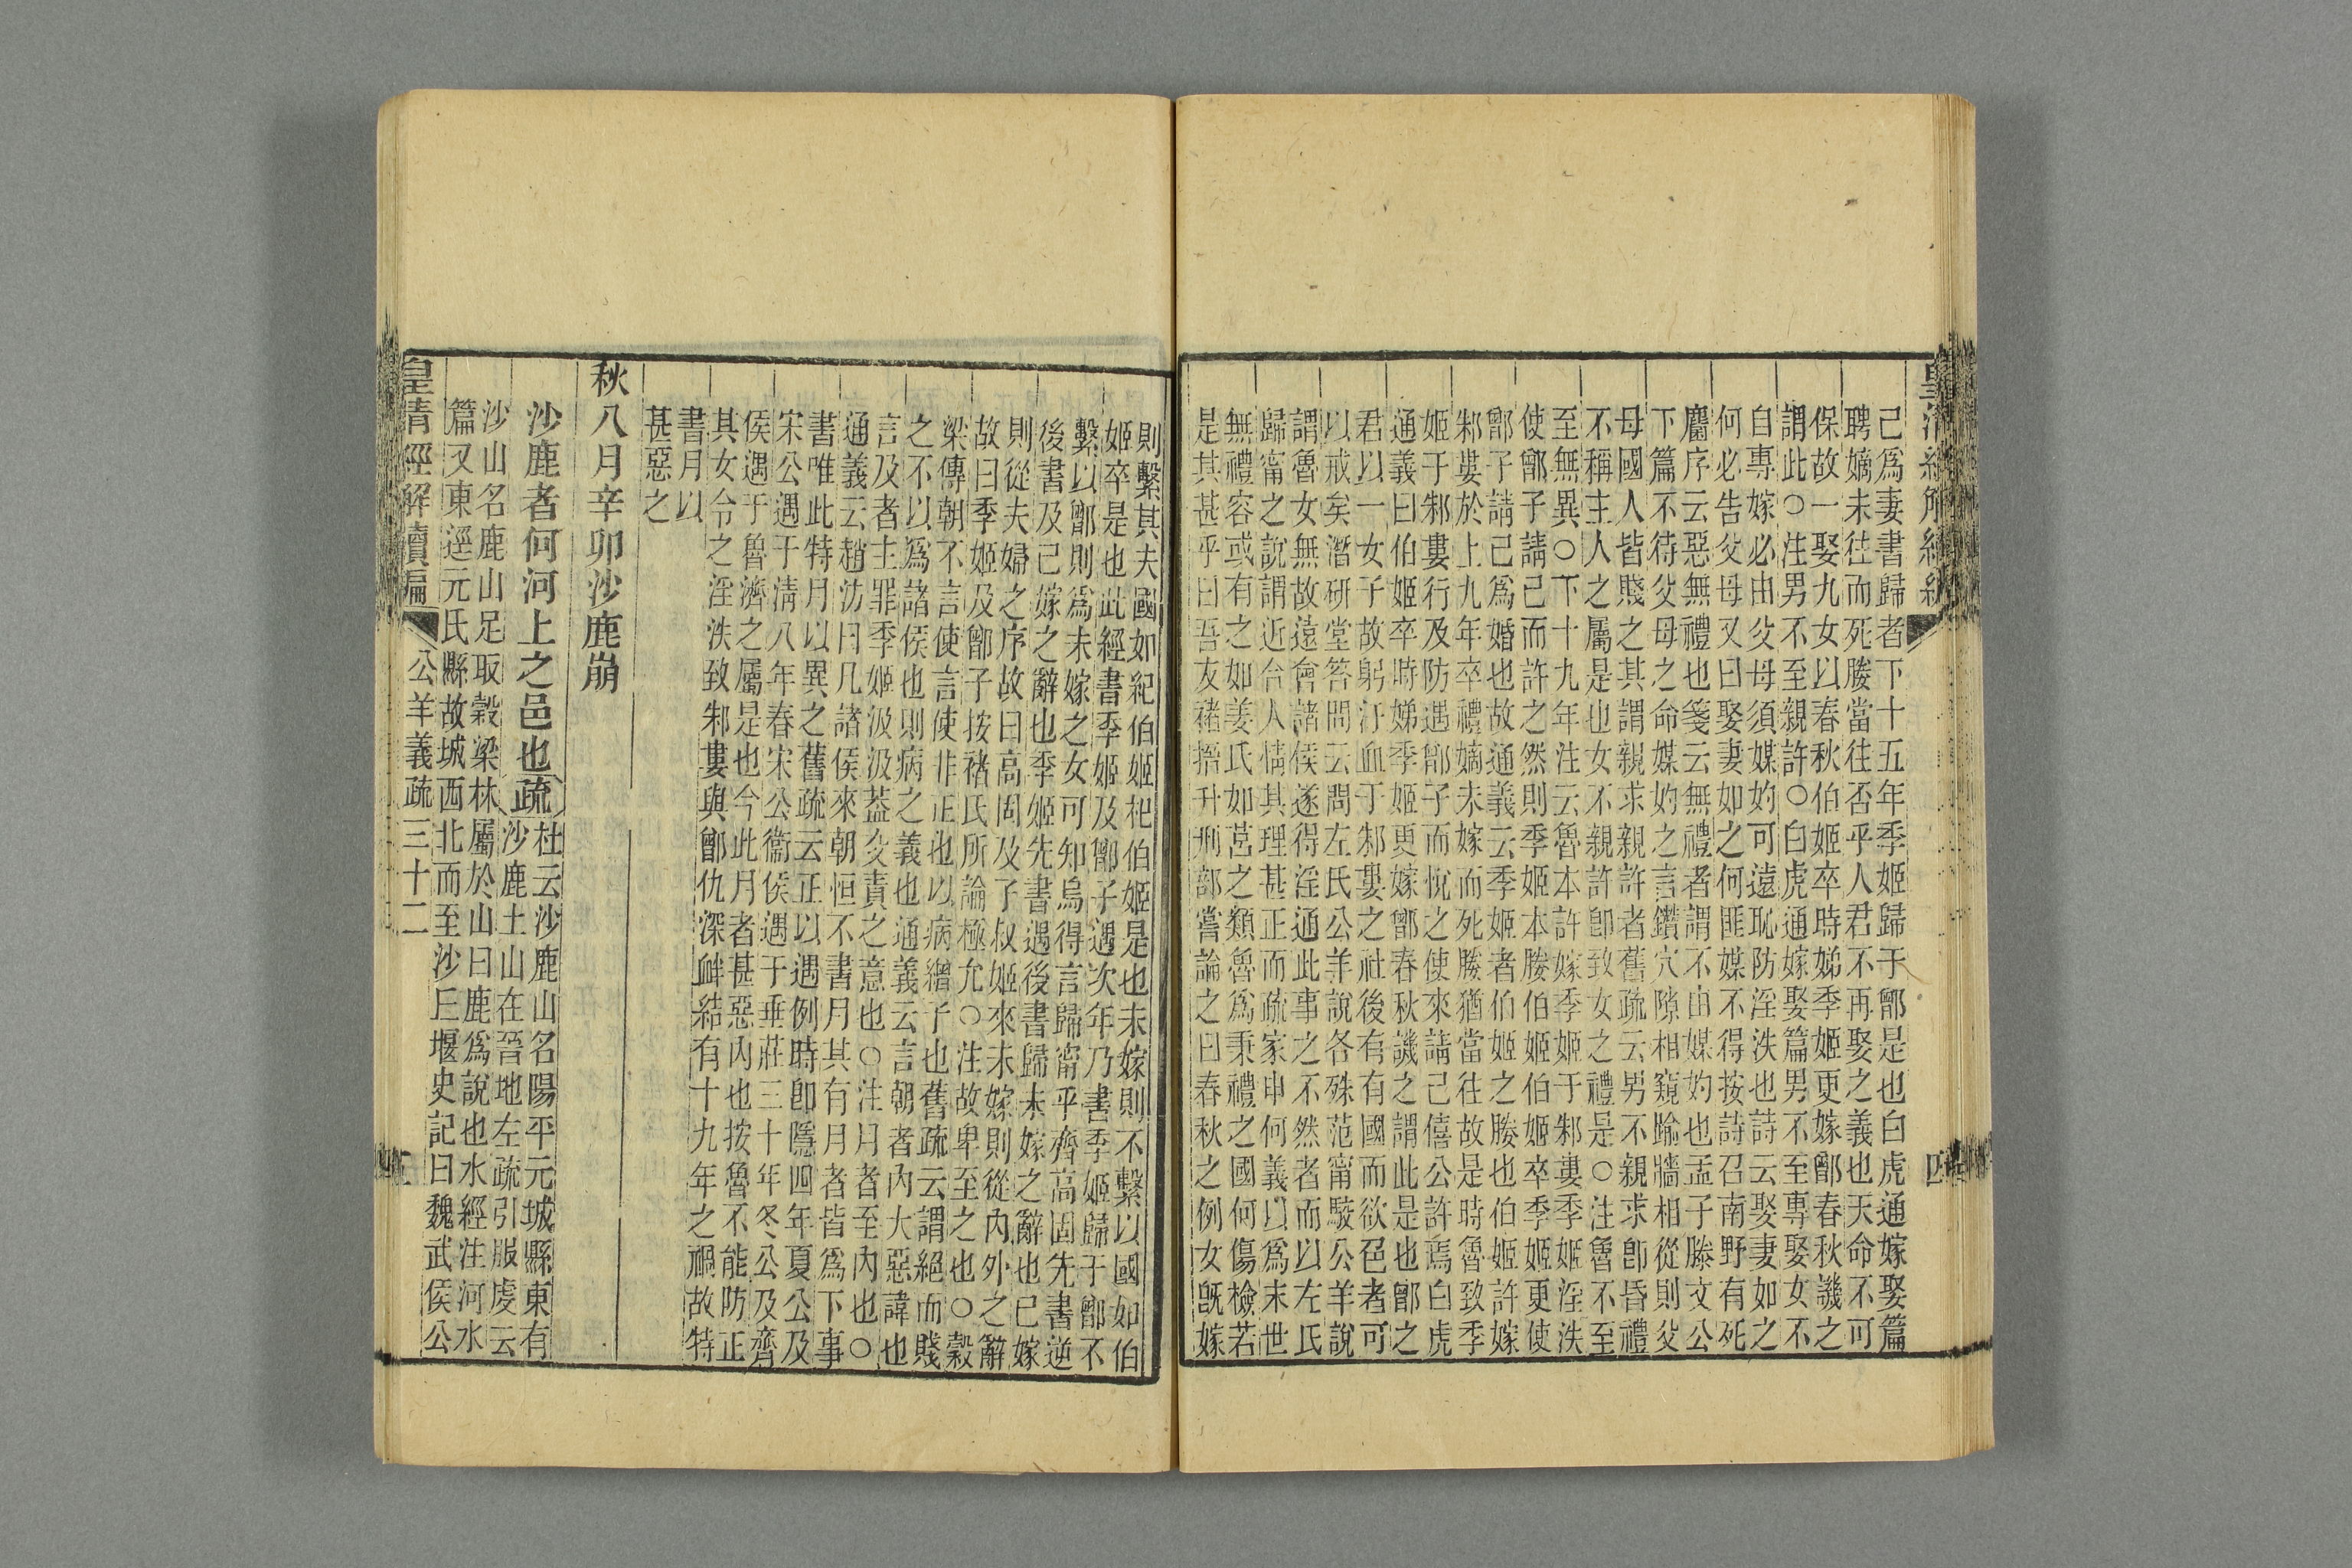 己爲妻書歸者下十五年季姬歸于鄫是也白虎通嫁娶篇
聘嫡未往而死媵當往否乎人君不再娶之義也天命不可
保故一娶九女以春秋伯姬卒時娣季姬更嫁鄫春秋譏之
謂此○注男不至親許○白虎通嫁娶篇男不至專娶女不
自專嫁必由父母須媒妁可遠恥防淫泆也詩云娶妻如之
何必告父母又曰娶妻如之何匪媒不得按詩召南野有死
麕序云惡無禮也箋云無禮者謂不由媒妁也孟子滕文公
下篇不待父母之命媒妁之言鑽穴隙相窺踰牆相從則父
母國人皆賤之其謂親求親許者舊疏云男不親求卽昏禮
不稱主人之屬是也女不親許卽致女之禮是○注魯不至
至無異○下十九年注云魯本許嫁季姬于邾婁季姬淫泆
使鄫子請已而許之然則季姬本媵伯姬伯姬卒季姬更使
鄫子請己爲婚也故通義云季姬者伯姬之媵也伯姬許嫁
邾婁於上九年卒禮嫡未嫁而死媵猶當往故是時魯致季
姬于邾婁行及防遇鄫子而悅之使來請己僖公許焉白虎
通義曰伯姬卒時娣季姬更嫁鄫春秋譏之謂此是也鄫之
君以一女子故躬汙血于邾婁之社後有有國而欲色者可
以戒矣潛硏堂答問云問左氏公羊說各殊范甯駮公羊說
謂魯女無故遠會諸侯遂得淫通此事之不然者而以左氏
歸甯之說謂近合人情其理甚正而疏家申何義以爲末世
無禮容或有之如姜氏如莒之類魯爲秉禮之國何傷檢若
是其甚乎曰吾友褚搢升刑部嘗論之曰春秋之例女旣嫁
皇清經解續編
四
則繫其夫國如紀伯姬杞伯姬是也未嫁則不繫以國如伯
姬卒是也此經書季姬及鄫子遇次年乃書季姬歸于鄫不
繫以鄫則爲未嫁之女可知烏得言歸甯乎齊高固先書逆
後書及己嫁之辭也季姬先書遇後書歸未嫁之辭也已嫁
則從夫婦之序故曰高固及子叔姬來未嫁則從內外之辭
故曰季姬及鄫子按褚氏所論極允○注故卑至之也○穀
梁傳朝不言使言使非正也以病繒子也舊疏云謂絕而賤
之不以爲諸侯也則病之義也通義云言朝者內大惡諱也
言及者主罪季姬汲汲蓋父責之意也○注月者至內也○
通義云趙汸曰凡諸侯來朝恒不書月其有月者皆爲下事
書唯此特月以異之舊疏云正以遇例時卽隱四年夏公及
宋公遇于淸八年春宋公衞侯遇于垂莊三十年冬公及齊
侯遇于魯濟之屬是也今此月者甚惡內也按魯不能防正
其女令之淫泆致邾婁與鄫仇深衅結有十九年之禍故特
書月以
甚惡之
秋八月辛卯沙鹿崩
沙鹿者何河上之邑也疏
杜云沙鹿山名陽平元城縣東有
沙鹿土山在晉地左疏引服虔云
沙山名鹿山足取穀梁林屬於山曰鹿爲說也水經注河水
篇又東逕元氏縣故城西北而至沙丘堰史記曰魏武侯公
皇清經解續編
公羊義疏三十二